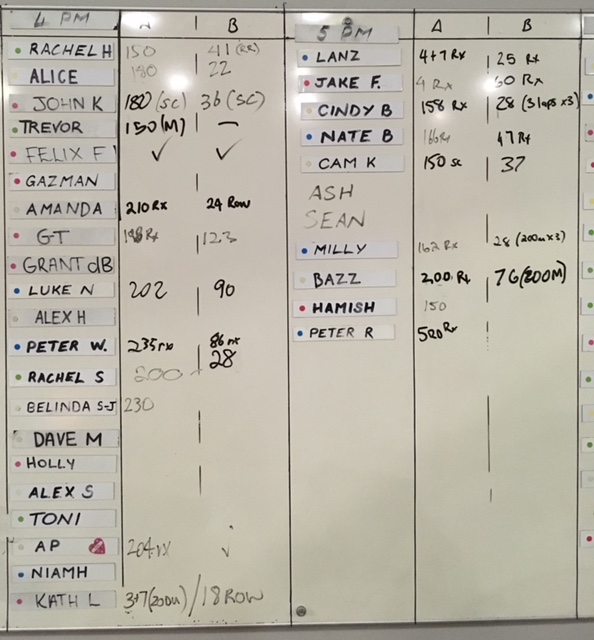 4 PM A B
RACHEL H 150 41 (RX)
ALICE 180 22
JOHN K 180 (SC) 36 (SC)
TREVOR 150 (M) –
FELIX F ✓ ✓
GAZMAN
AMANDA 210 Rx 24 Row
GT 198 Rx 123
GRANT dB
LUKE N 202 90
ALEX H
PETER W. 235 rx 86 rx
RACHEL S 200 28
BELINDA S-J 230
DAVE M
HOLLY
ALEX S
TONI
AP 204 rx ✓
NIAMH
KATH L 3+7 (200m) / 18 ROW
5 PM A B
LANZ 4+7 Rx 25 Rx
JAKE F. 4 Rx 60 Rx
CINDY B 158 Rx 28 (3 laps x3)
NATE B 166 Rx 47 Rx
CAM K 150 sc 37
ASH
SEAN
MILLY 162 Rx 28 (200m x3)
BAZZ 200 Rx 76 (800M)
HAMISH 150
PETER R 500 Rx